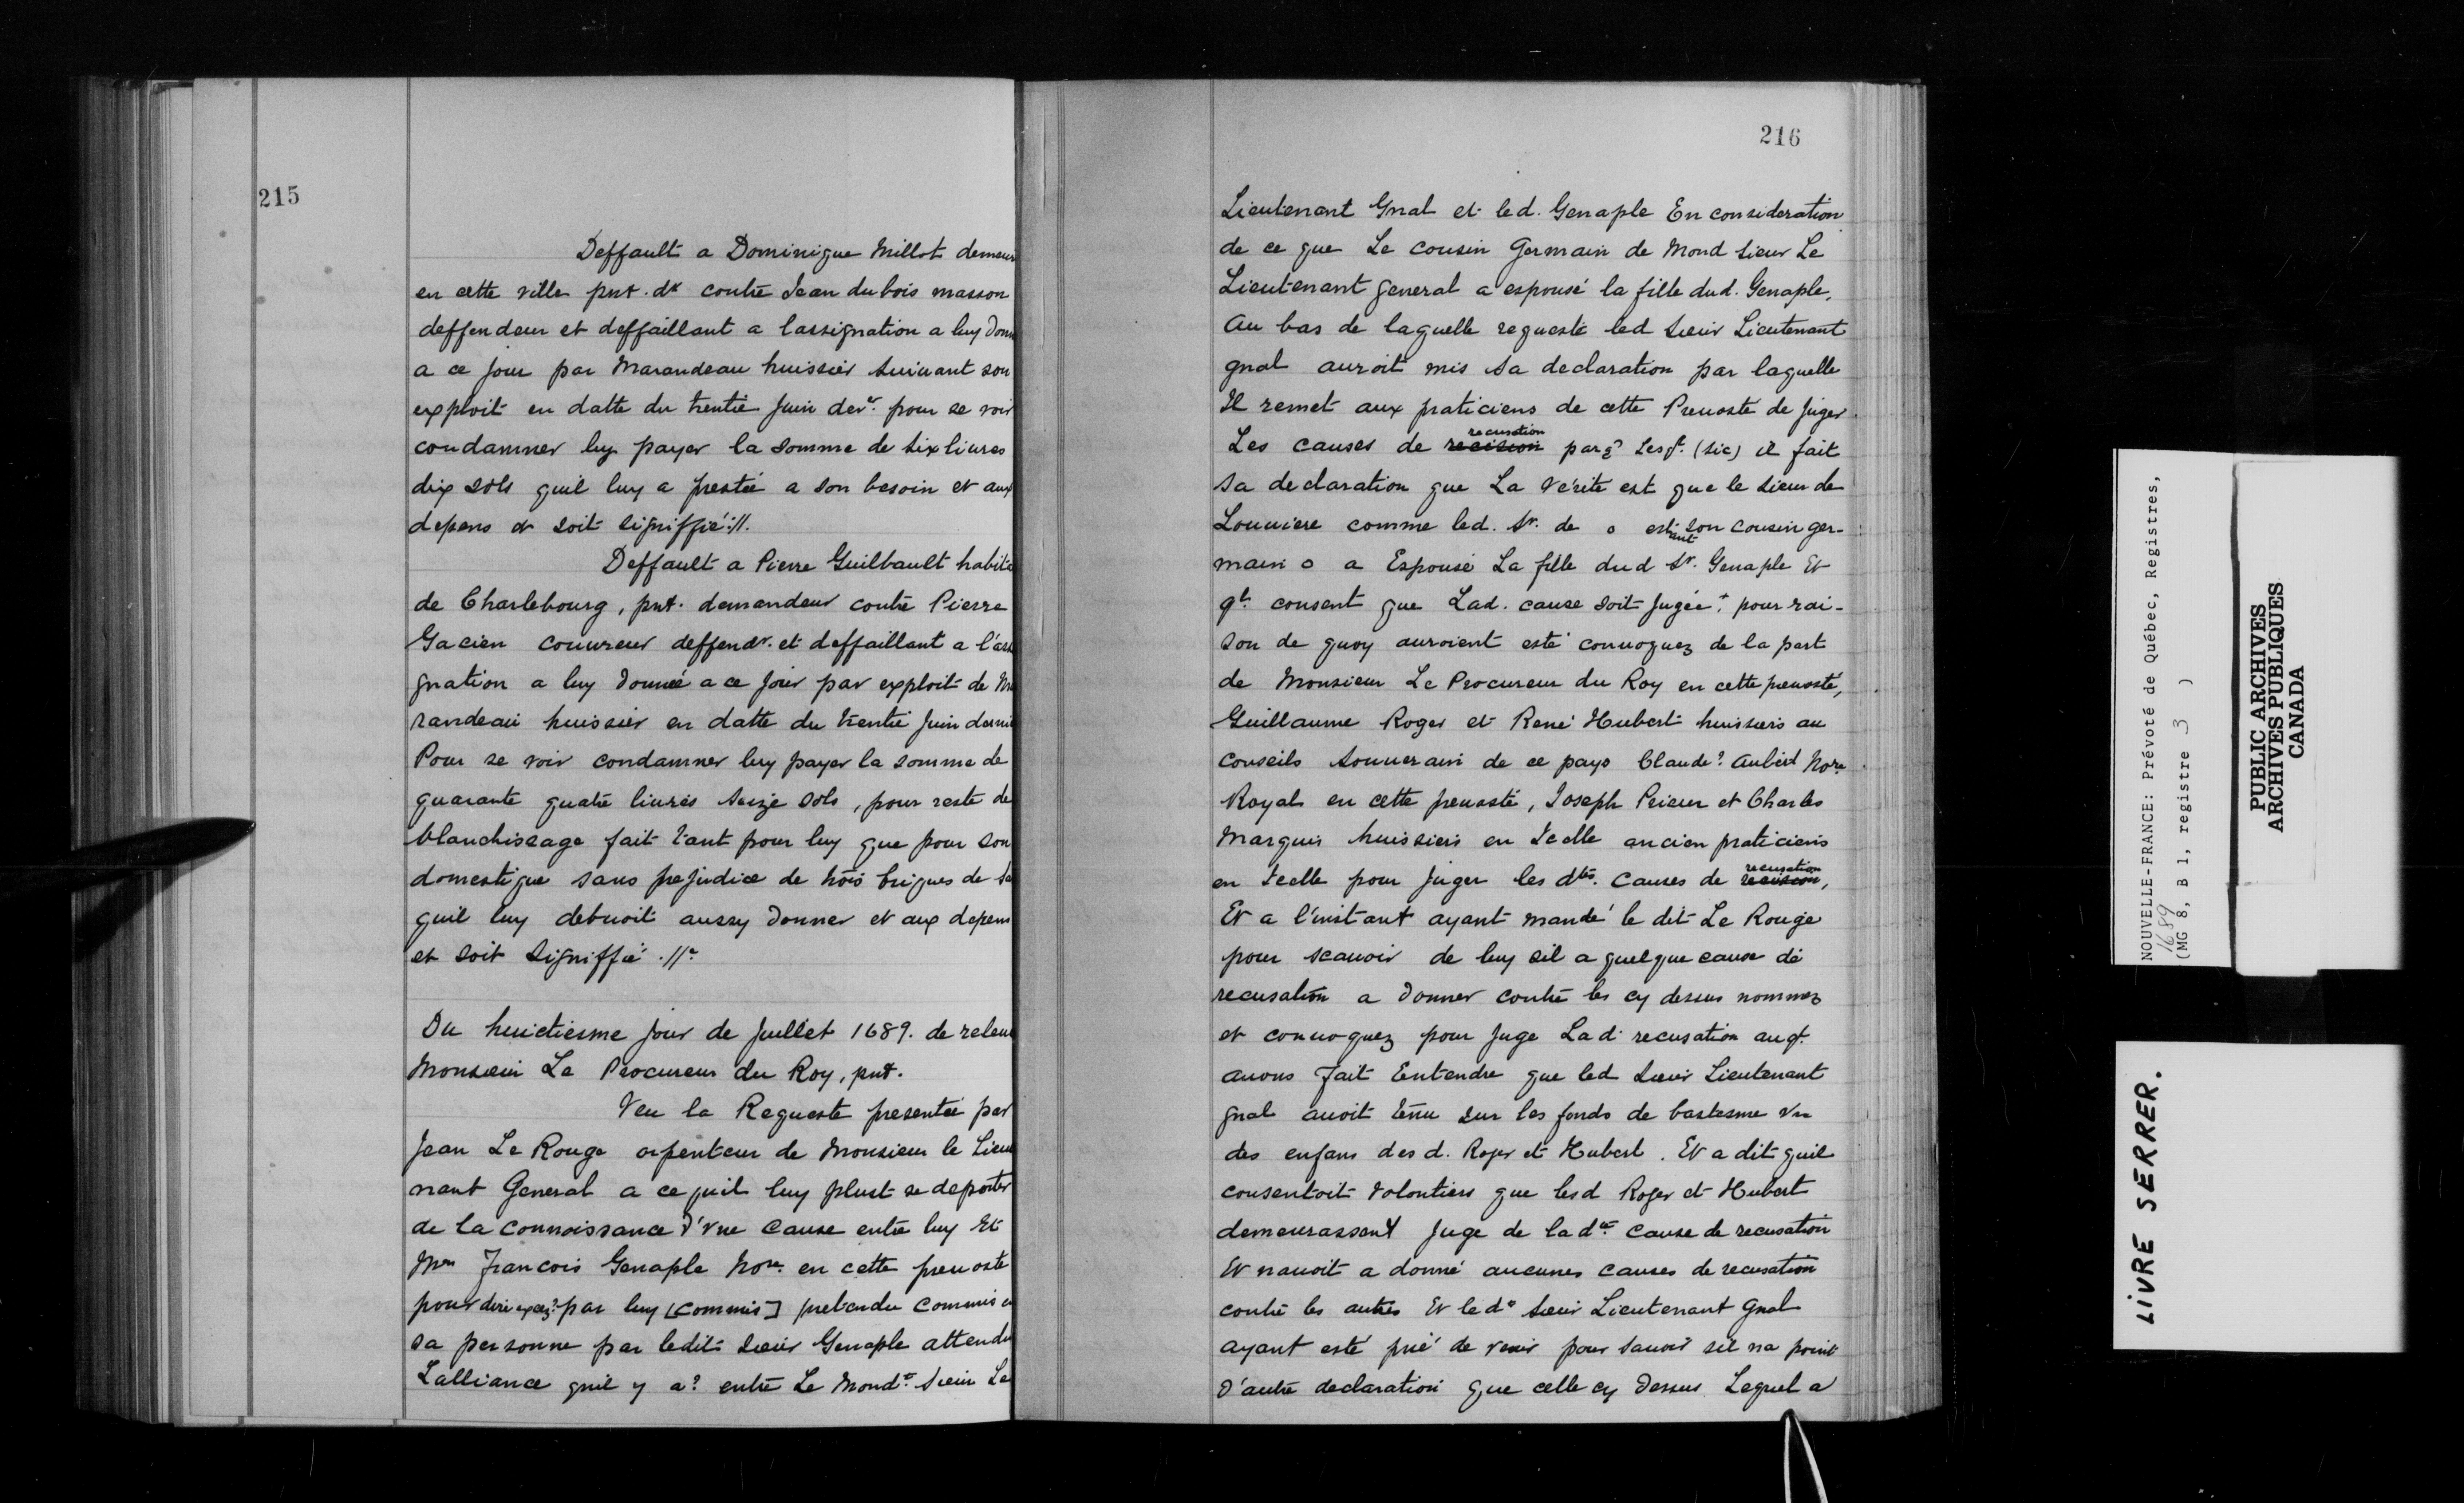 215
Deffault a Dominique Millot demeur
en cette ville pnt. dr contre Jean dubois masson
deffendeur et deffaillant a lassignation a luy donn
a ce jour par Marandeau huissier suivant son
exploit en datte du trentie Juin der. pour se voir
condamner luy payer la somme de six liures
dix sols quil luy a prestée a son besoin et aux
depens et soit signiffié ://.
Deffault a Pierre Guilbault habita
de Charlebourg, pnt. demandeur contre Pierre
Gacien couureur deffendr. et deffaillant a l'assi
gnation a luy donnée a ce jour par exploit de Ma
randeau huissier en datte du trentie Juin derni
Pour se voir condamner luy payer la somme de
quarante quatre liures seize sols, pour reste de
blanchissage fait tant pour luy que pour son
domestique sans prejudice de trois briques de
quil luy debuoit aussy donner et aux depens
et soit signiffié .//.
Du huictiesme jour de Juillet 1689. de releué
Monsieur Le Procureur du Roy, pnt.
Veu la Requeste presentée par
Jean Le Rouge arpenteur de Monsieur le Lieu
nant General a ce quil luy plust se deporter
de la connoissance d'vne cause entre luy Et
Me Francois Genaple Nore. en cette preuosté
pour dire excez? par luy [commis] pretendu commis en
sa personne par ledit sieur Genaple attendu
Lalliance quil y a? entre Le Mond. sieur Le
216
Lieutenant Gnal et led. Genaple En consideration
de ce que Le cousin Germain de Mond sieur Le
Lieutenant general a espousé la fille dud. Genaple,
Au bas de laquelle requeste led sieur Lieutenant
gnal auroit mis sa declaration par laquelle
Il remet aux praticiens de cette Preuosté de juger
Les causes de recision recusation parq? Lesqt. (sic) il fait
sa declaration que La Vérité est que le sieur de
Louuiere comme led. Sr. de o estant son cousin ger-
main o a Espousé La fille dud Sr. Genaple Et
qt. consent que Lad. cause soit Jugée + pour rai-
son de quoy auroient esté conuoquez de la part
de Monsieur Le Procureur du Roy en cette preuosté,
Guillaume Roger et René Hubert huissiers au
Conseils Souuerain de ce pays Claude? Aubert Nore
Royal en cette preuosté, Joseph Prieur et Charles
Marquis huissiers en Icelle ancien praticiens
en Icelle pour Juger les dtes. causes de recision recusation,
Et a l'instant ayant mandé le dit Le Rouge
pour scauoir de luy sil a quelque cause de
recusation a donner contre les cy dessus nommez
et conuoquez pour Juge Lad. recusation auqt.
auons fait Entendre que led sieur Lieutenant
gnal auoit tenu sur les fonds de bastesme vn
des enfans desd. Roger et Hubert. Et a dit quil
consentoit volontiers que lesd Roger et Hubert
demeurassent Juge de lade. cause de recusation
Et nauoit a donné aucunes causes de recusation
contre les autres Et led. sieur Lieutenant Gnal
ayant esté prié de venir pour sauoir sil na point
d'autre declaration que celle cy dessus Lequel a
NOUVELLE-FRANCE: Prévoté de Québec, Registres,
1689
(MG 8, B 1, registre 3 )
PUBLIC ARCHIVES
ARCHIVES PUBLIQUES
CANADA
LIVRE SERRER.